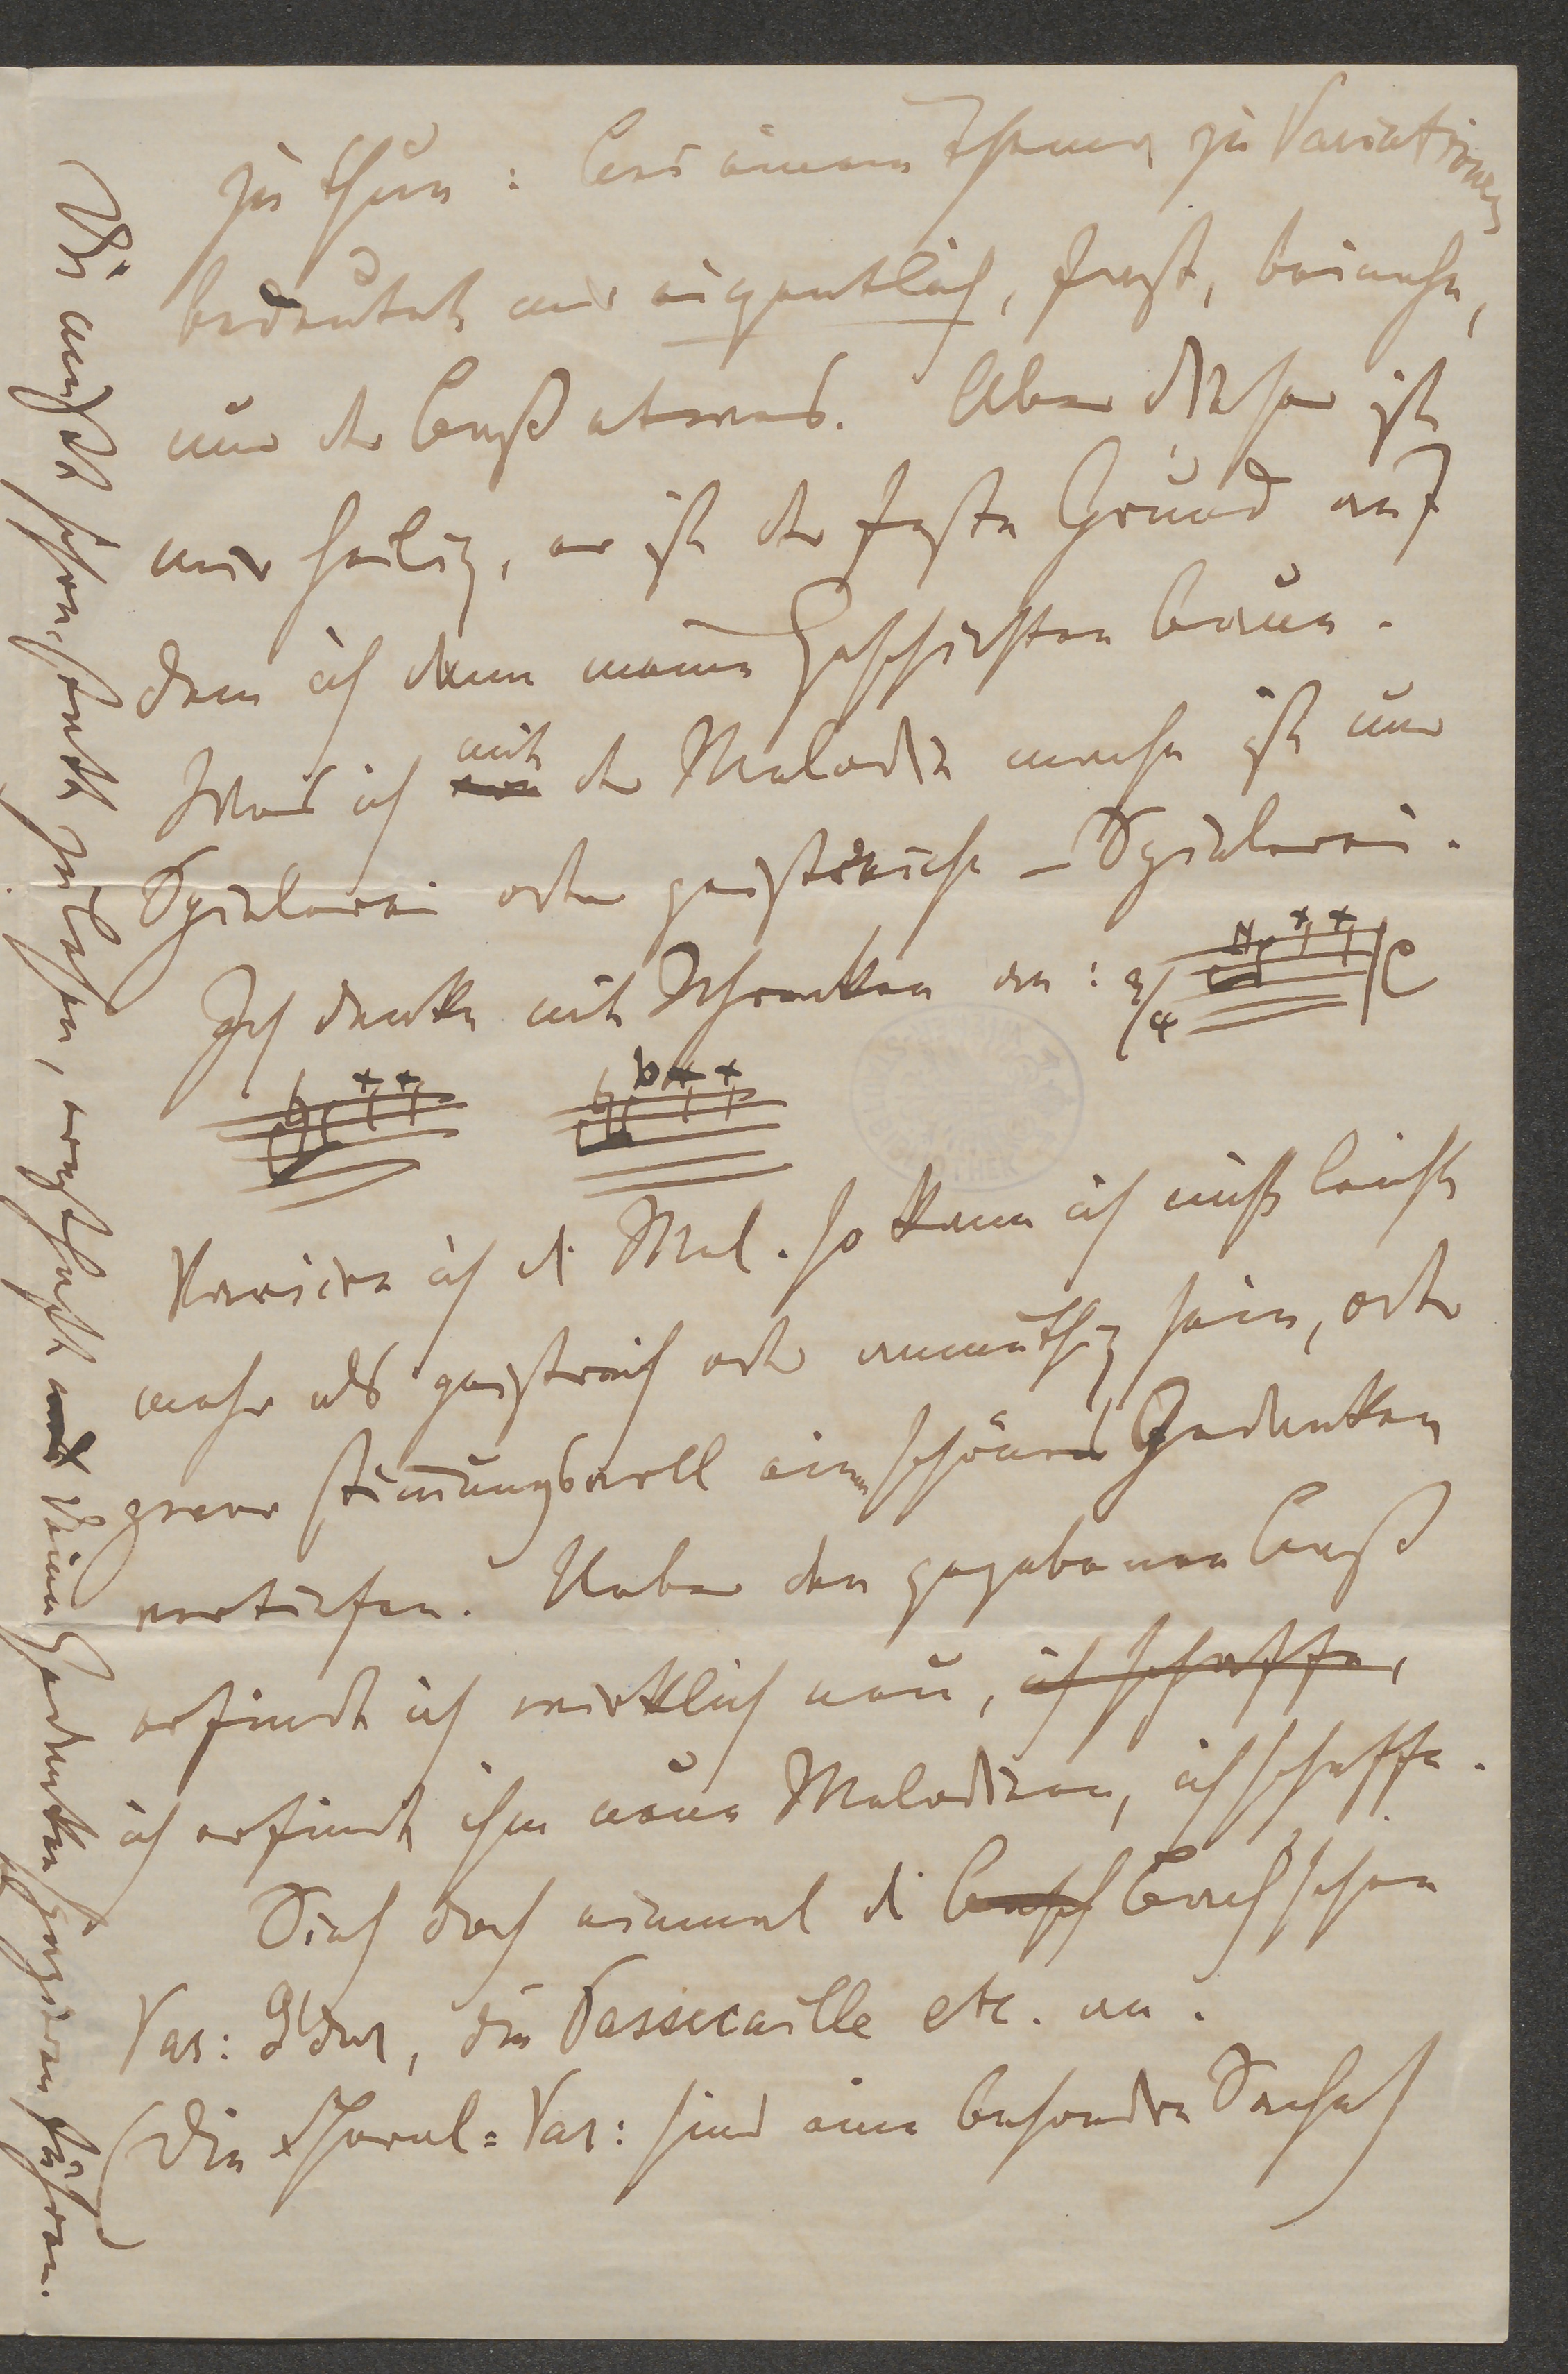 zu thun: bei einem Thema zu Variationen
bedeutet mir eigentlich, fast, beinahe,
nur der Baß etwas. Aber dieser ist
mir heilig, er ist der feste Grund auf
dem ich dann meine Geschichten baue.
Was ich mit der Melodie mache ist nur
Spielerei oder geistreiche – Spielerei.
Ich denke mit Schrecken an: 3/4
Variire ich die Mel. so kann ich nicht leicht
mehr als geistreich oder anmuthig sein, oder
zwar stimmungsvoll einen schönen Gedanken
vertiefen. Ueber den gegebenen Baß
erfinde ich wirklich neu, ich schaffe,
ich erfinde ihm neue Melodieen, ich schaffe.
Sieh doch einmal die Bachschen
Var: G dur, die Passecaille etc. an.
(Die Choral=Var: sind eine besondre Sache)
Gedanken spazieren führen.